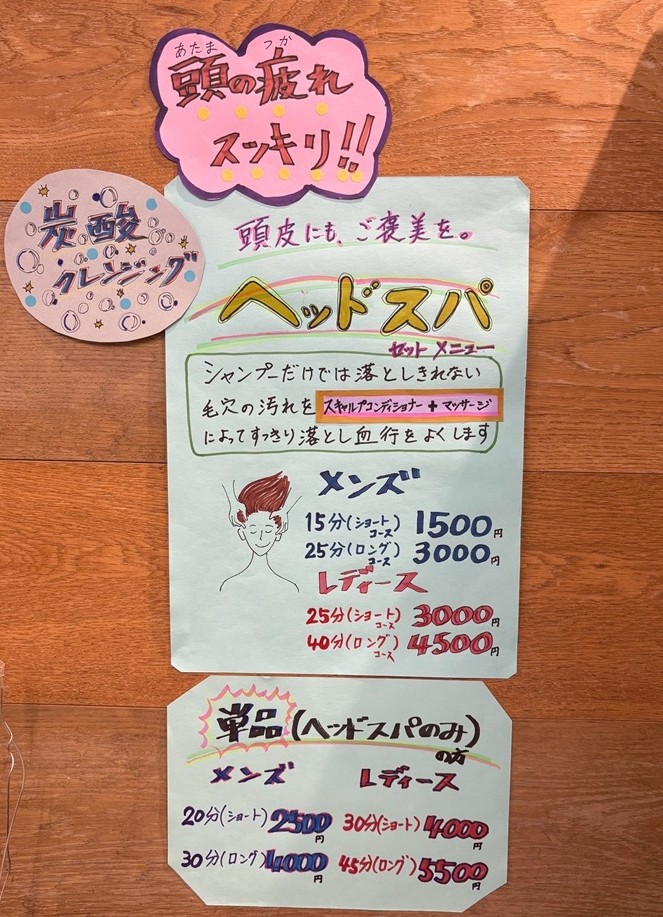 あたま つか
頭の疲れ
スッキリ!!
炭酸
クレンジング
頭皮にも、ご褒美を。
ヘッドスパ
セットメニュー
シャンプーだけでは落としきれない
毛穴の汚れを スキャルプコンディショナー + マッサージ
によってすっきり落とし血行をよくします
メンズ
15分(ショートコース) 1500円
25分(ロングコース) 3000円
レディース
25分(ショートコース) 3000円
40分(ロングコース) 4500円
単品(ヘッドスパのみ)
の方
メンズ レディース
20分(ショート) 2500円 30分(ショート) 4000円
30分(ロング) 4000円 45分(ロング) 5500円